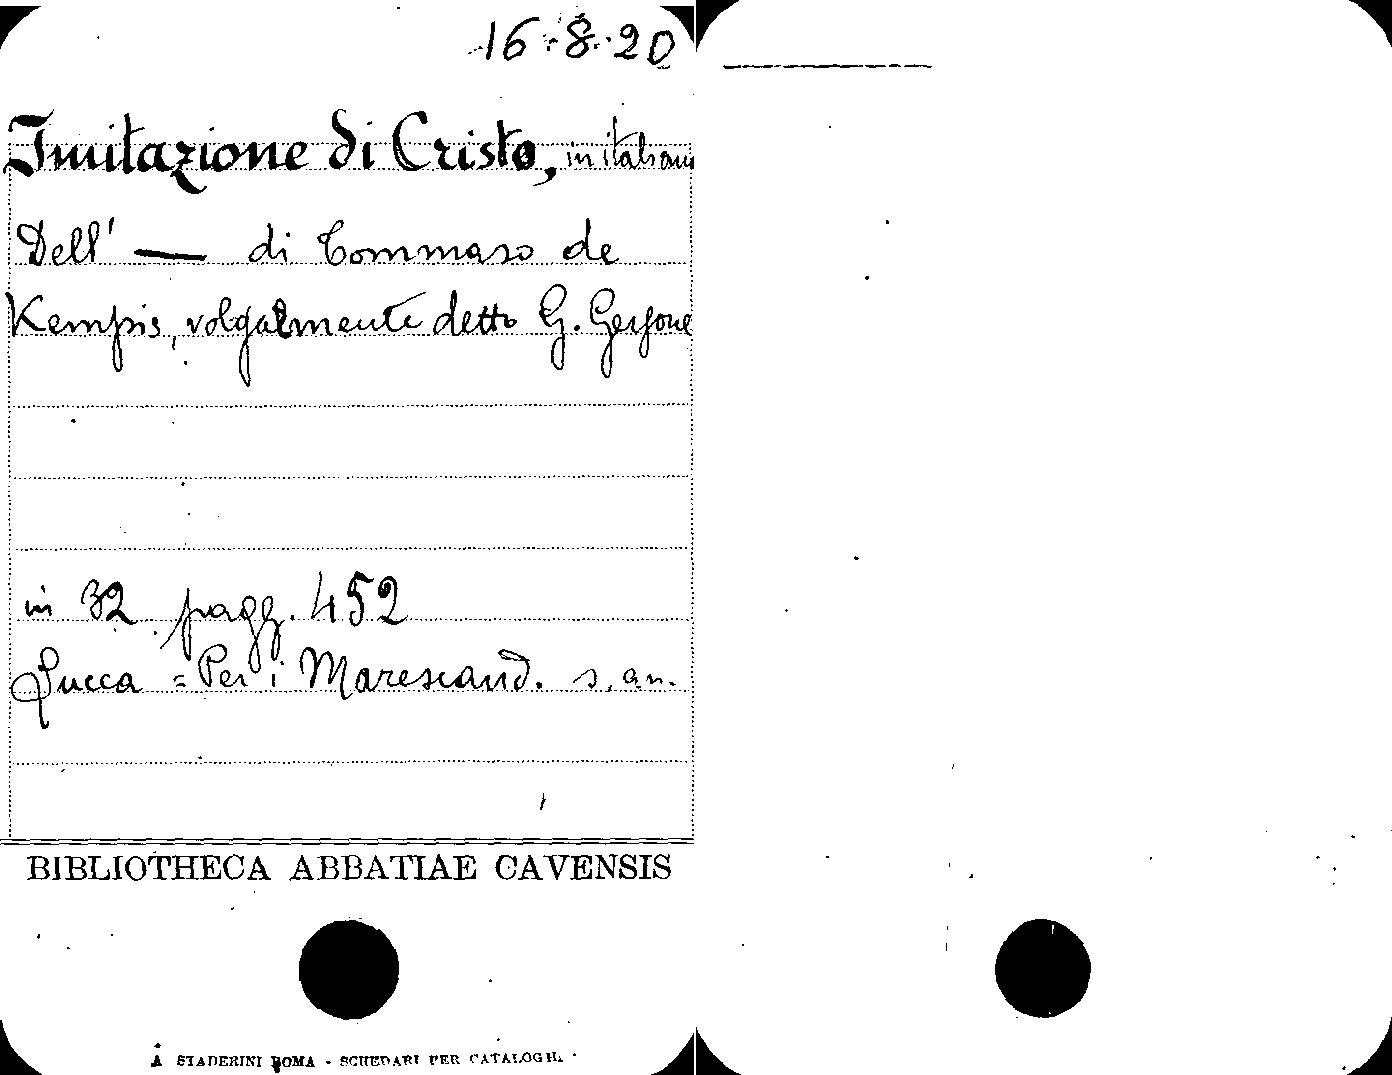 16-8-20
Imitazione di Cristo, in italiano
Dell' — di Tommaso de
Kempis, volgalmente detto G. Gersone
in 32 pagg. 452
Lucca = Per i Marescand. s. an.
BIBLIOTHECA ABBATIAE CAVENSIS
A STADERINI ROMA - SCHEDARI PER CATALOGHI.